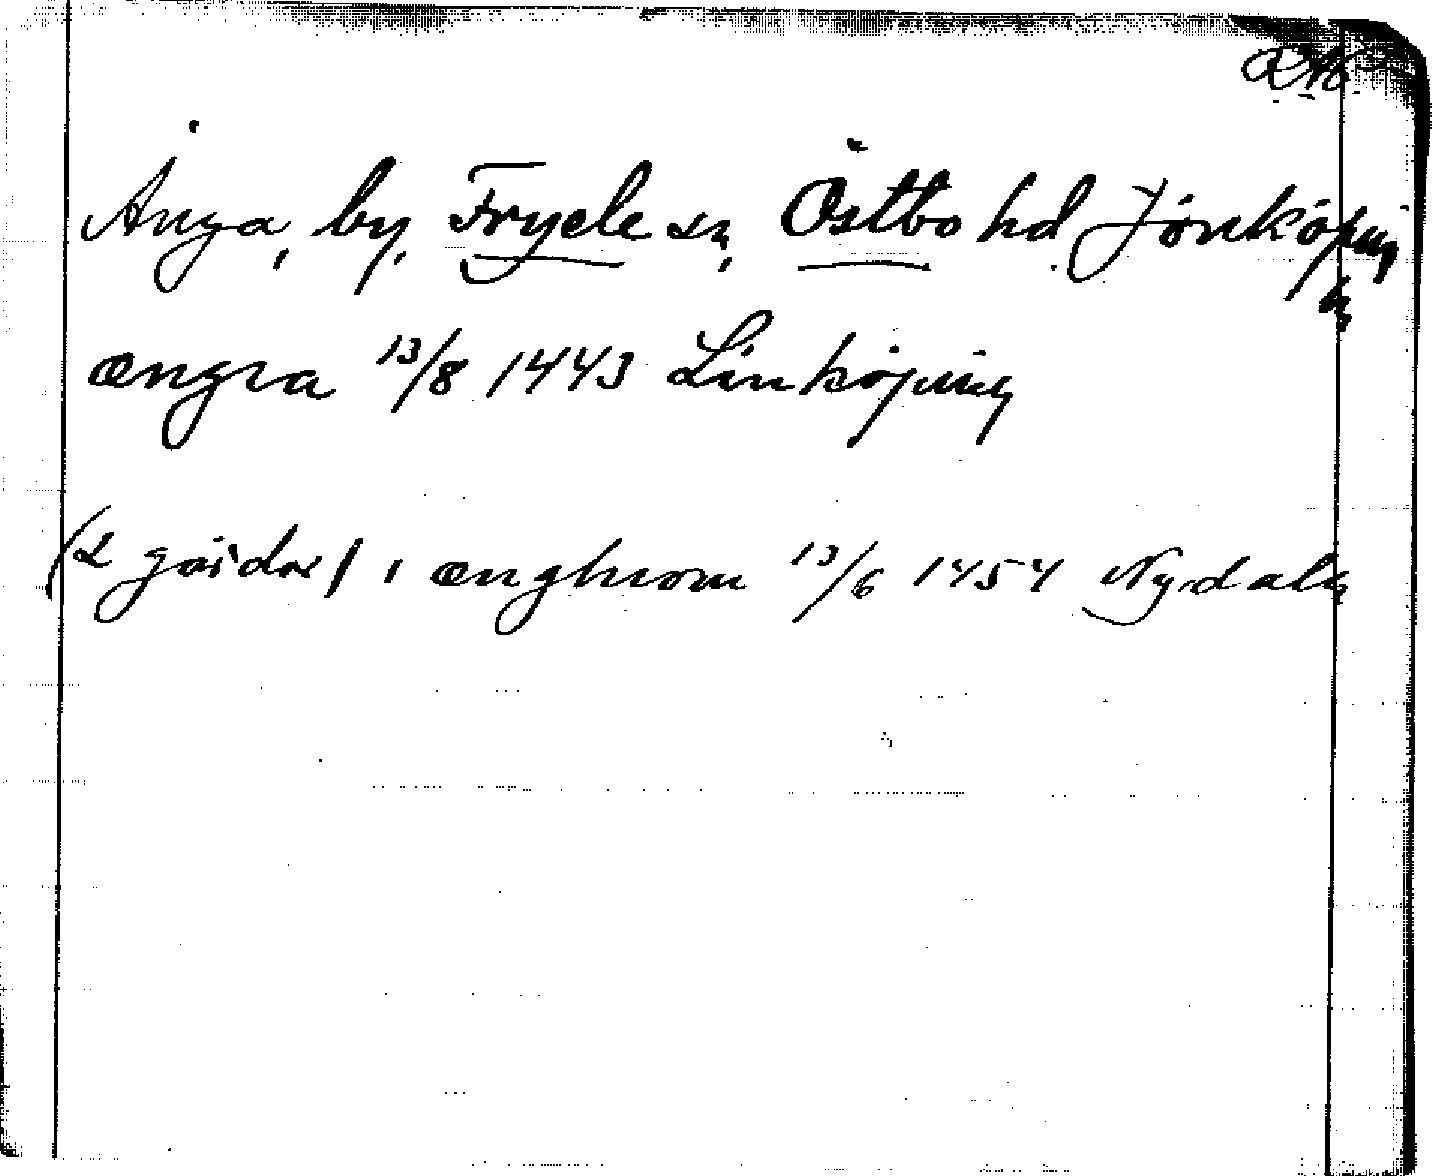 Änga, by, Fryele sn, Östbo hd Jönköping
ængra 13/8 1443 Linköping
(2 gårdar) i ænghrom 13/6 1454 Nydala